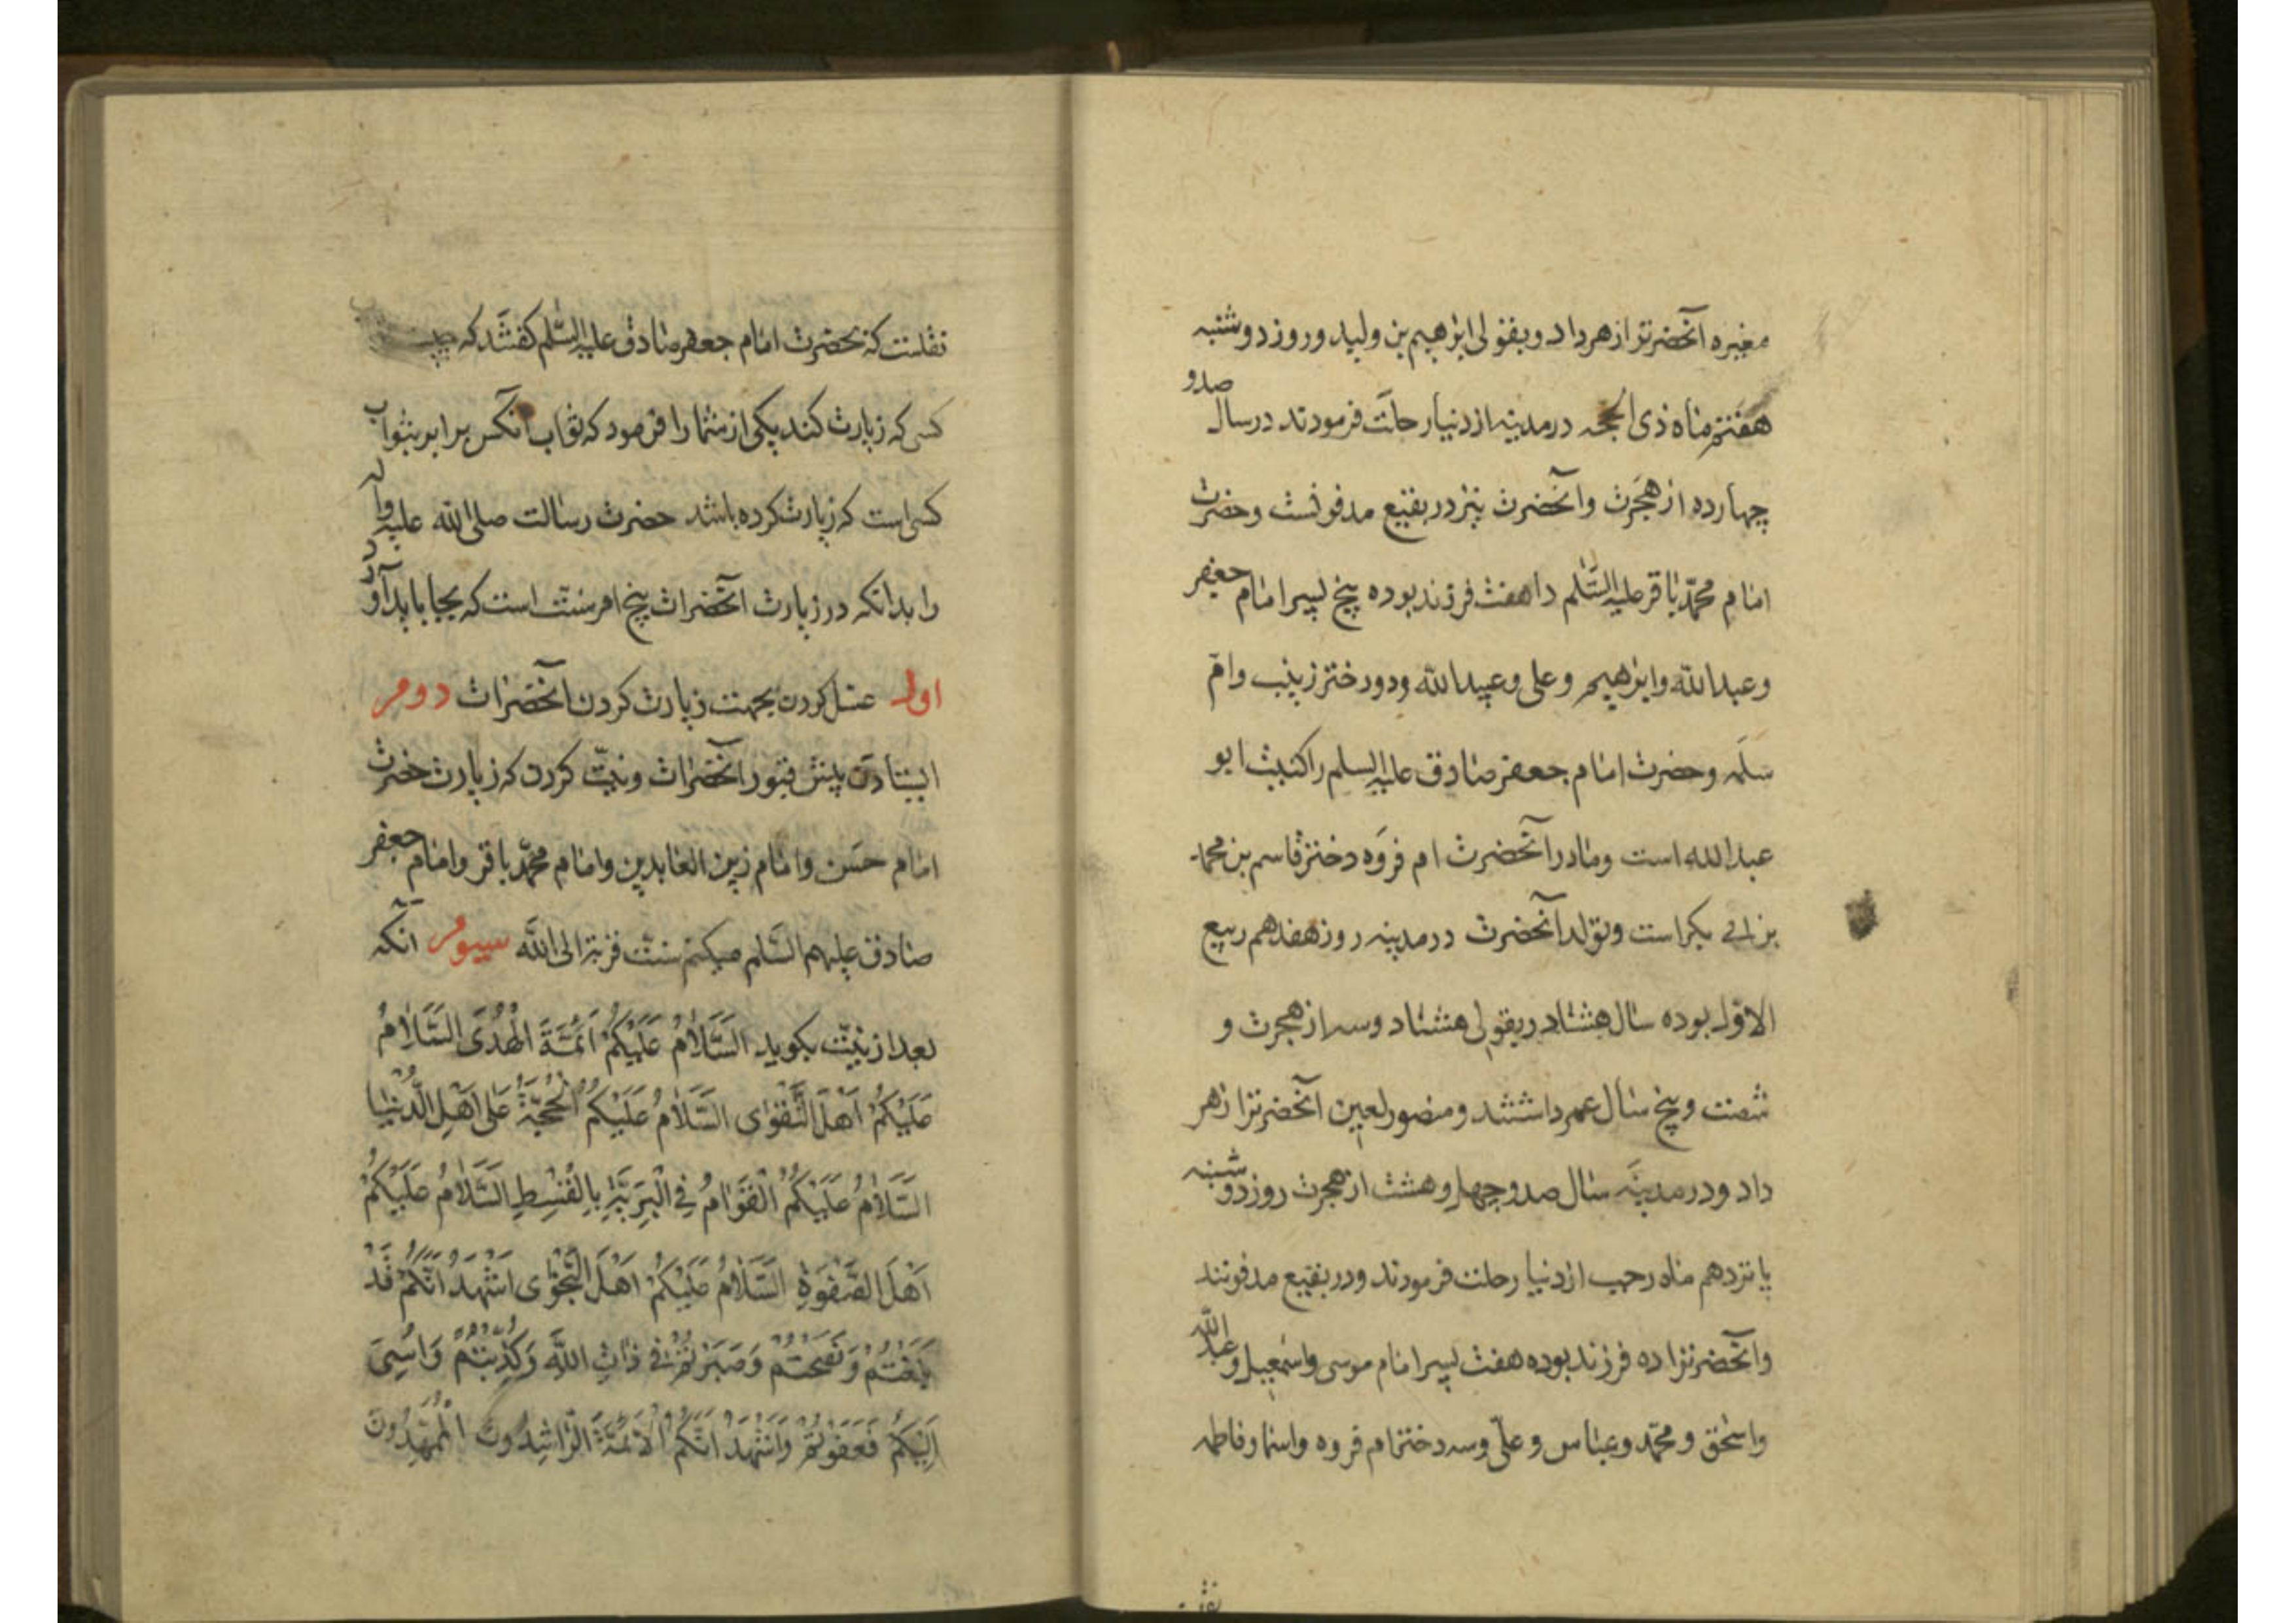 مغیره آنحضرترا زهر داد و بقولی ابرهیم بن ولید و روز دوشنبه
هفتم ماه ذی الحجه در مدینه از دنیا رحلت فرمودند در سال صد و
چهارده از هجرت و آنحضرت نیز در بقیع مدفونست و حضرت
امام محمّد باقر علیه السّلم را هفت فرزند بوده پنج پسر امام جعفر
و عبدالله و ابرهیم و علی و عبیدالله و دو دختر زینب و امّ
سلمه و حضرت امام جعفر صادق علیه السلم را کنیت ابو
عبدالله است و مادر آنحضرت ام فروه دختر قاسم بن محمد
بن ابی بکر است و تولد آنحضرت در مدینه روز هفدهم ربیع
الاوّل بوده سال هشتاد و بقولی هشتاد و سه از هجرت و
شصت و پنج سال عمر داشتند و منصور لعین آنحضرترا زهر
داد و در مدینه سال صد و چهل و هشت از هجرت روز دوشنبه
پانزدهم ماه رجب از دنیا رحلت فرمودند و در بقیع مدفونند
و آنحضرترا ده فرزند بوده هفت پسر امام موسی و اسمعیل و عبدالله
و اسحق و محمّد و عباس و علیّ و سه دختر ام فروه و اسما و فاطمه
نقلست که بحضرت امام جعفر صادق علیه السّلم گفتند که چیست
کسی که زیارت کند یکی از شما را فرمود که ثواب آنکس برابر بثواب
کسی است که زیارت کرده باشد حضرت رسالت صلی الله علیه و اله
را بدانکه در زیارت آنحضرات پنج امر سنّت است که بجا باید آورد
اول غسل کردن بجهت زیارت کردن آنحضرات دوم
ایستادن پیش قبور آنحضرات و نیّت کردن که زیارت حضرت
امام حسن و امام زین العابدین و امام محمّد باقر و امام جعفر
صادق علیهم السّلم میکنم سنّت قربة الی الله سیوم آنکه
بعد از نیّت بکوید السَّلَامُ عَلَيْكُمْ اَئِمَّةَ الْهُدَى السَّلَامُ
عَلَيْكُمْ اَهْلَ التَّقْوٰى السَّلَامُ عَلَيْكُمُ الْحُجَّةُ عَلٰى اَهْلِ الدُّنْيَا
السَّلَامُ عَلَيْكُمُ الْقَوَّامُ فِي الْبَرِيَّةِ بِالْقِسْطِ السَّلَامُ عَلَيْكُمْ
اَهْلَ الصَّفْوَةِ السَّلَامُ عَلَيْكُمْ اَهْلَ النَّجْوٰى اَشْهَدُ اَنَّكُمْ قَدْ
بَلَّغْتُمْ وَنَصَحْتُمْ وَصَبَرْتُمْ فِي ذَاتِ اللهِ وَكُذِّبْتُمْ وَاُسِيَ
اِلَيْكُمْ فَعَفَوْتُمْ وَاَشْهَدُ اَنَّكُمُ الْاَئِمَّةُ الرَّاشِدُونَ الْمَهْدِيُّونَ